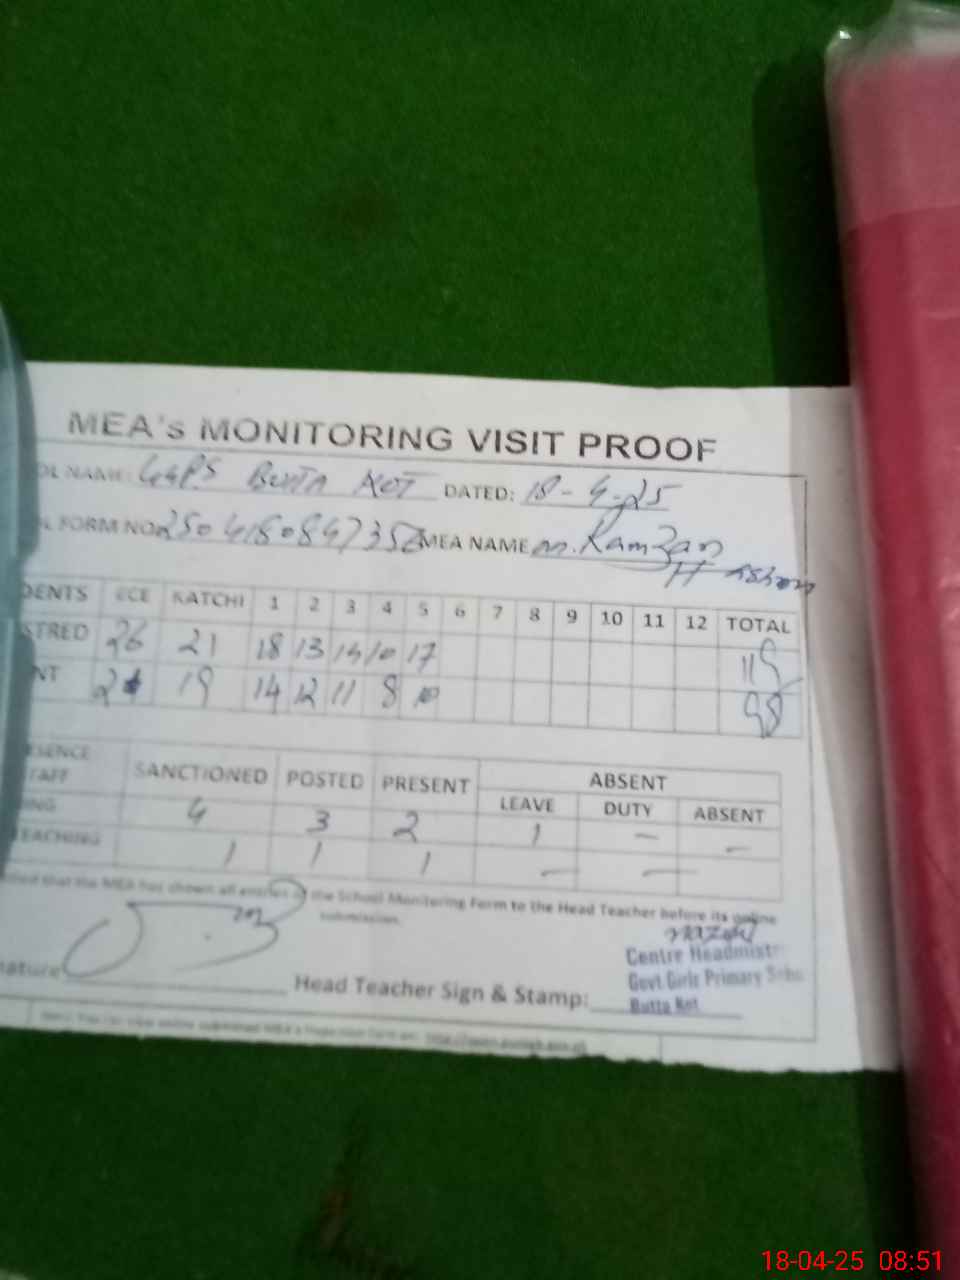 MEA's MONITORING VISIT PROOF
OL NAME: GGPS BUTTA KOT DATED: 18-4-25
L FORM NO. MEA NAME m. Ramzan
DENTS ECE KATCHI 1 2 3 4 5 6 7 8 9 10 11 12 TOTAL
STRED 26 21 18 13 14 10 17 119
NT 24 19 14 12 11 8 10 98
ESENCE
TAFF SANCTIONED POSTED PRESENT ABSENT
LEAVE DUTY ABSENT
ING 4 3 2 1 — —
EACHING 1 1 1 — —
that the MEA has shown all entries of the School Monitoring Form to the Head Teacher before its online
submission.
nature Head Teacher Sign & Stamp:
Centre Headmistr
Govt Girls Primary Scho
Butta Kot
18-04-25 08:51